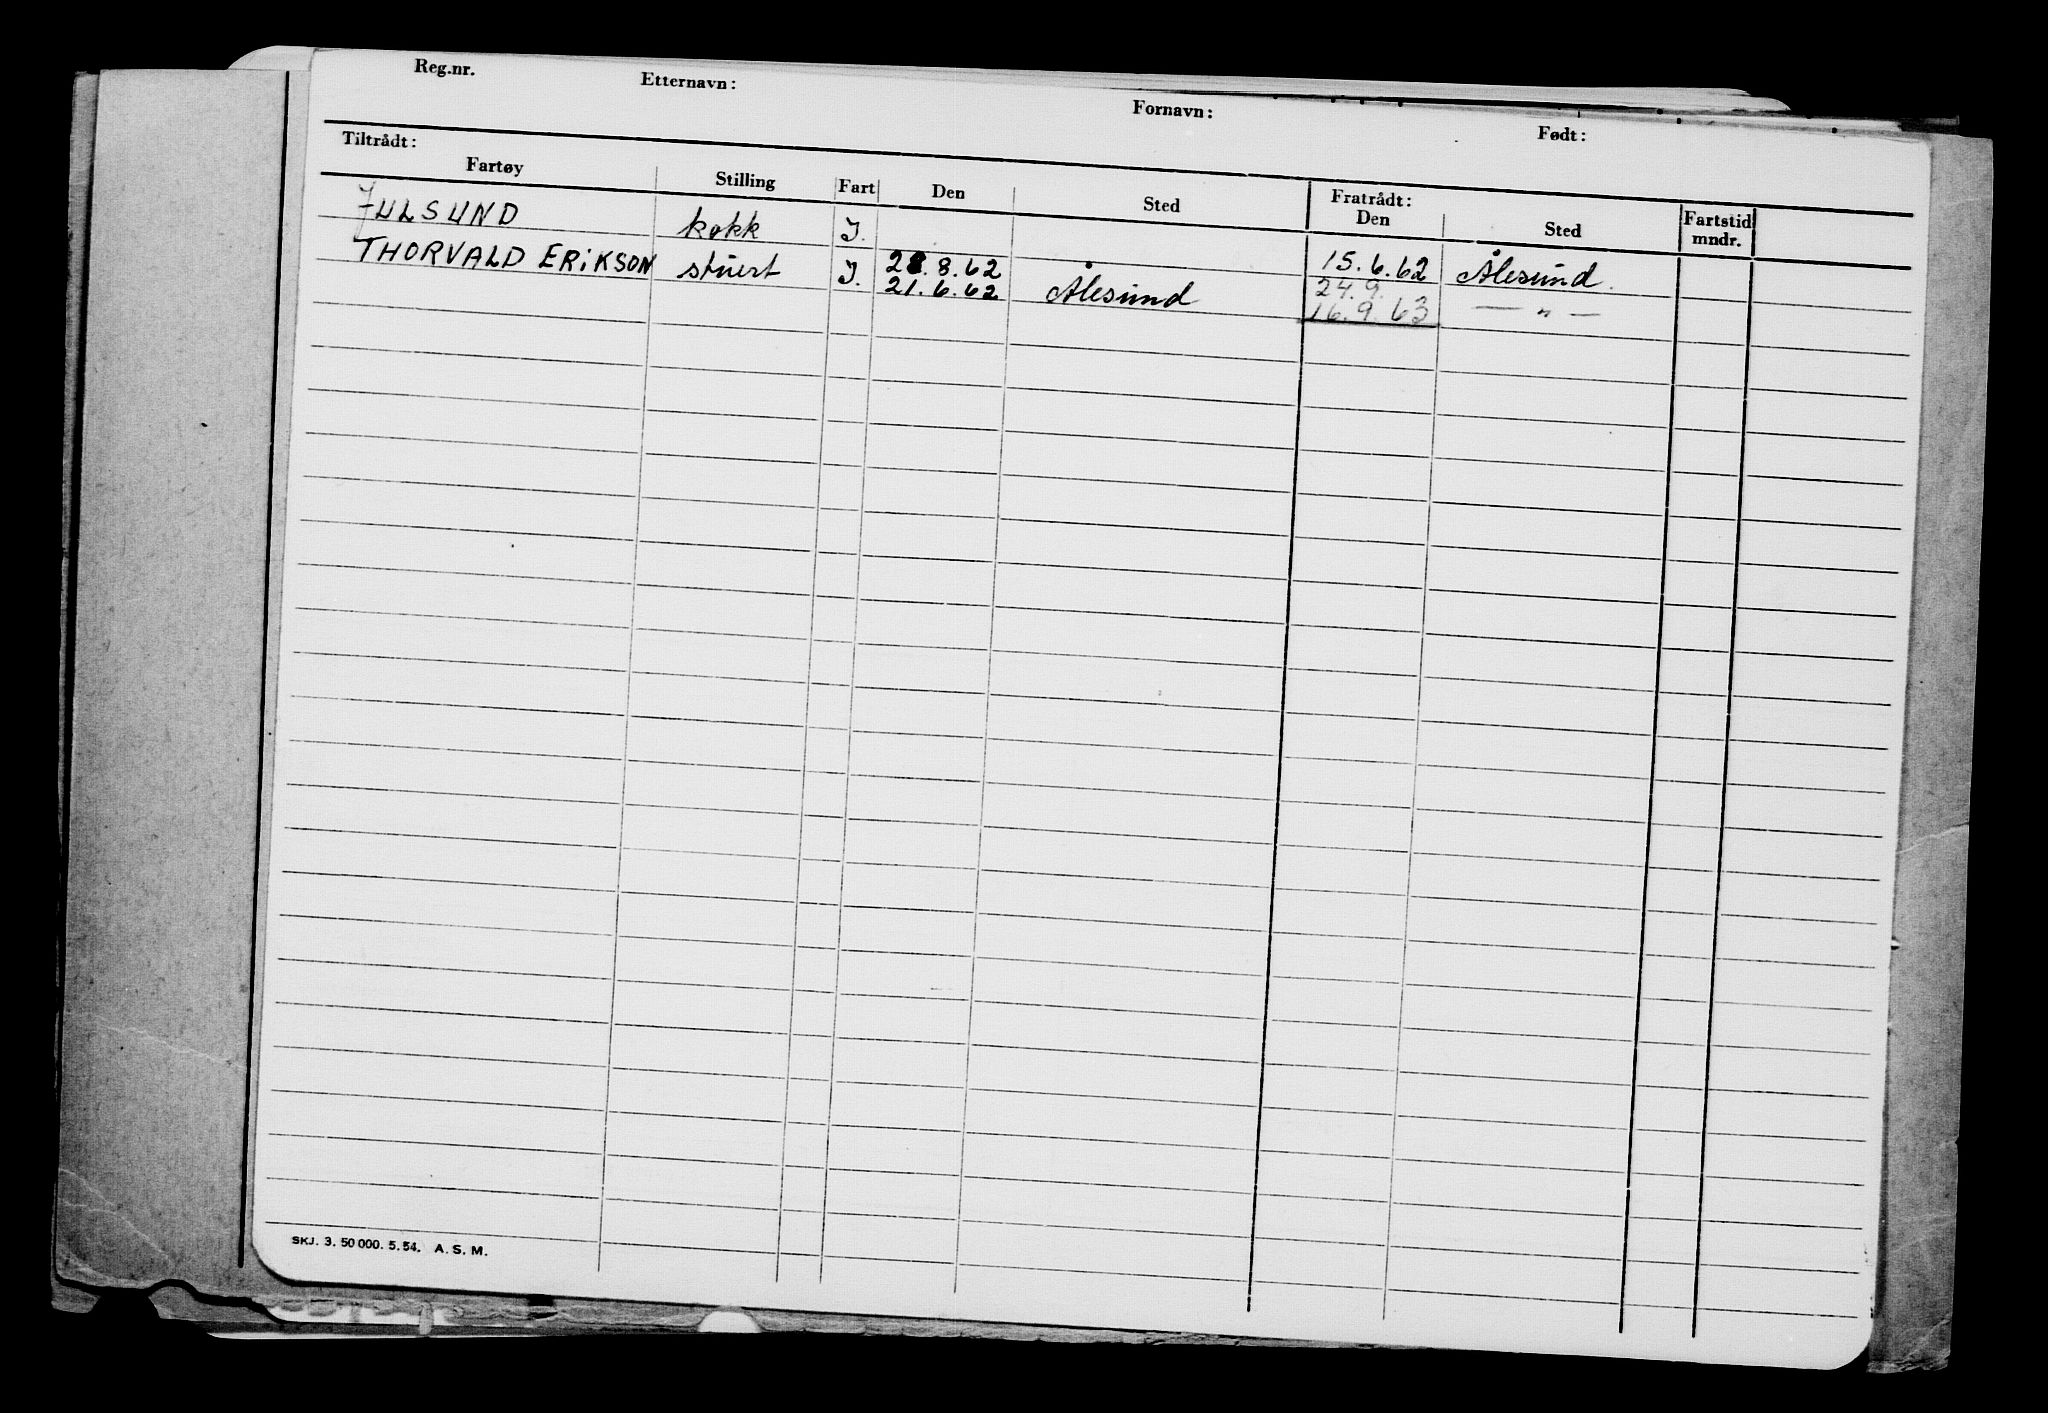 Reg.nr. Etternavn: Fornavn: Født:
Tiltrådt: Fratrådt:
Fartøy Stilling Fart Den Sted Den Sted Fartstid mndr.
JULSUND kokk I. 15.6.62 Ålesund.
THORVALD ERIKSON stuert I. 28.8.62 24.9.
21.6.62 Ålesund 16.9.63 — " —
SKJ. 3. 50 000. 5. 54. A. S. M.